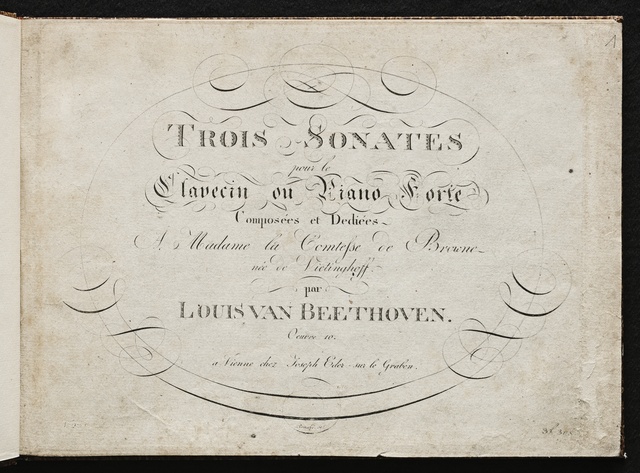 1
TROIS SONATES
pour le
Clavecin ou Piano Forte
Composées et Dediées
A Madame la Comtesse de Browne
née de Vietinghoff
par
LOUIS VAN BEETHOVEN.
Oeuvre 10.
a Vienne chez Joseph Eder sur le Graben.